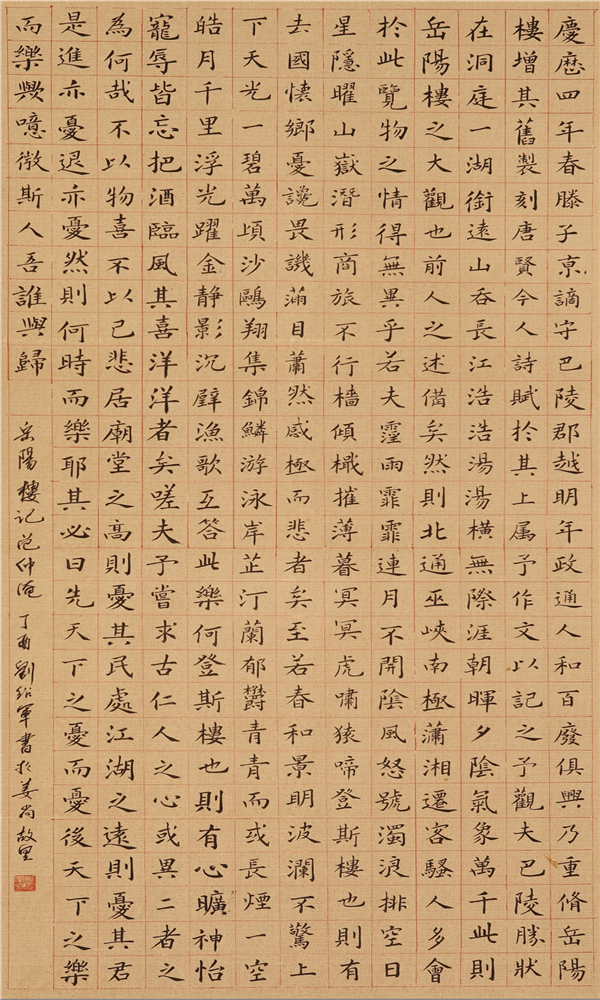 慶厯四年春滕子京謫守巴陵郡越明年政通人和百廢俱興乃重脩岳陽
樓增其舊製刻唐賢今人詩賦於其上属予作文以記之予觀夫巴陵勝狀
在洞庭一湖銜遠山吞長江浩浩湯湯橫無際涯朝暉夕陰氣象萬千此則
岳陽樓之大觀也前人之述備矣然則北通巫峽南極瀟湘遷客騷人多會
於此覽物之情得無異乎若夫霪雨霏霏連月不開陰風怒號濁浪排空日
星隱曜山嶽潛形商旅不行檣傾檝摧薄暮冥冥虎嘯猿啼登斯樓也則有
去國懷鄉憂讒畏譏滿目蕭然感極而悲者矣至若春和景明波瀾不驚上
下天光一碧萬頃沙鷗翔集錦鱗游泳岸芷汀蘭郁欝青青而或長煙一空
皓月千里浮光躍金靜影沉璧漁歌互答此樂何登斯樓也則有心曠神怡
寵辱皆忘把酒臨風其喜洋洋者矣嗟夫予嘗求古仁人之心或異二者之
為何哉不以物喜不以己悲居廟堂之高則憂其民處江湖之遠則憂其君
是進亦憂退亦憂然則何時而樂耶其必曰先天下之憂而憂後天下之樂
而樂歟噫微斯人吾誰與歸
岳陽樓记范仲淹 丁酉劉紹軍書於姜尚故里